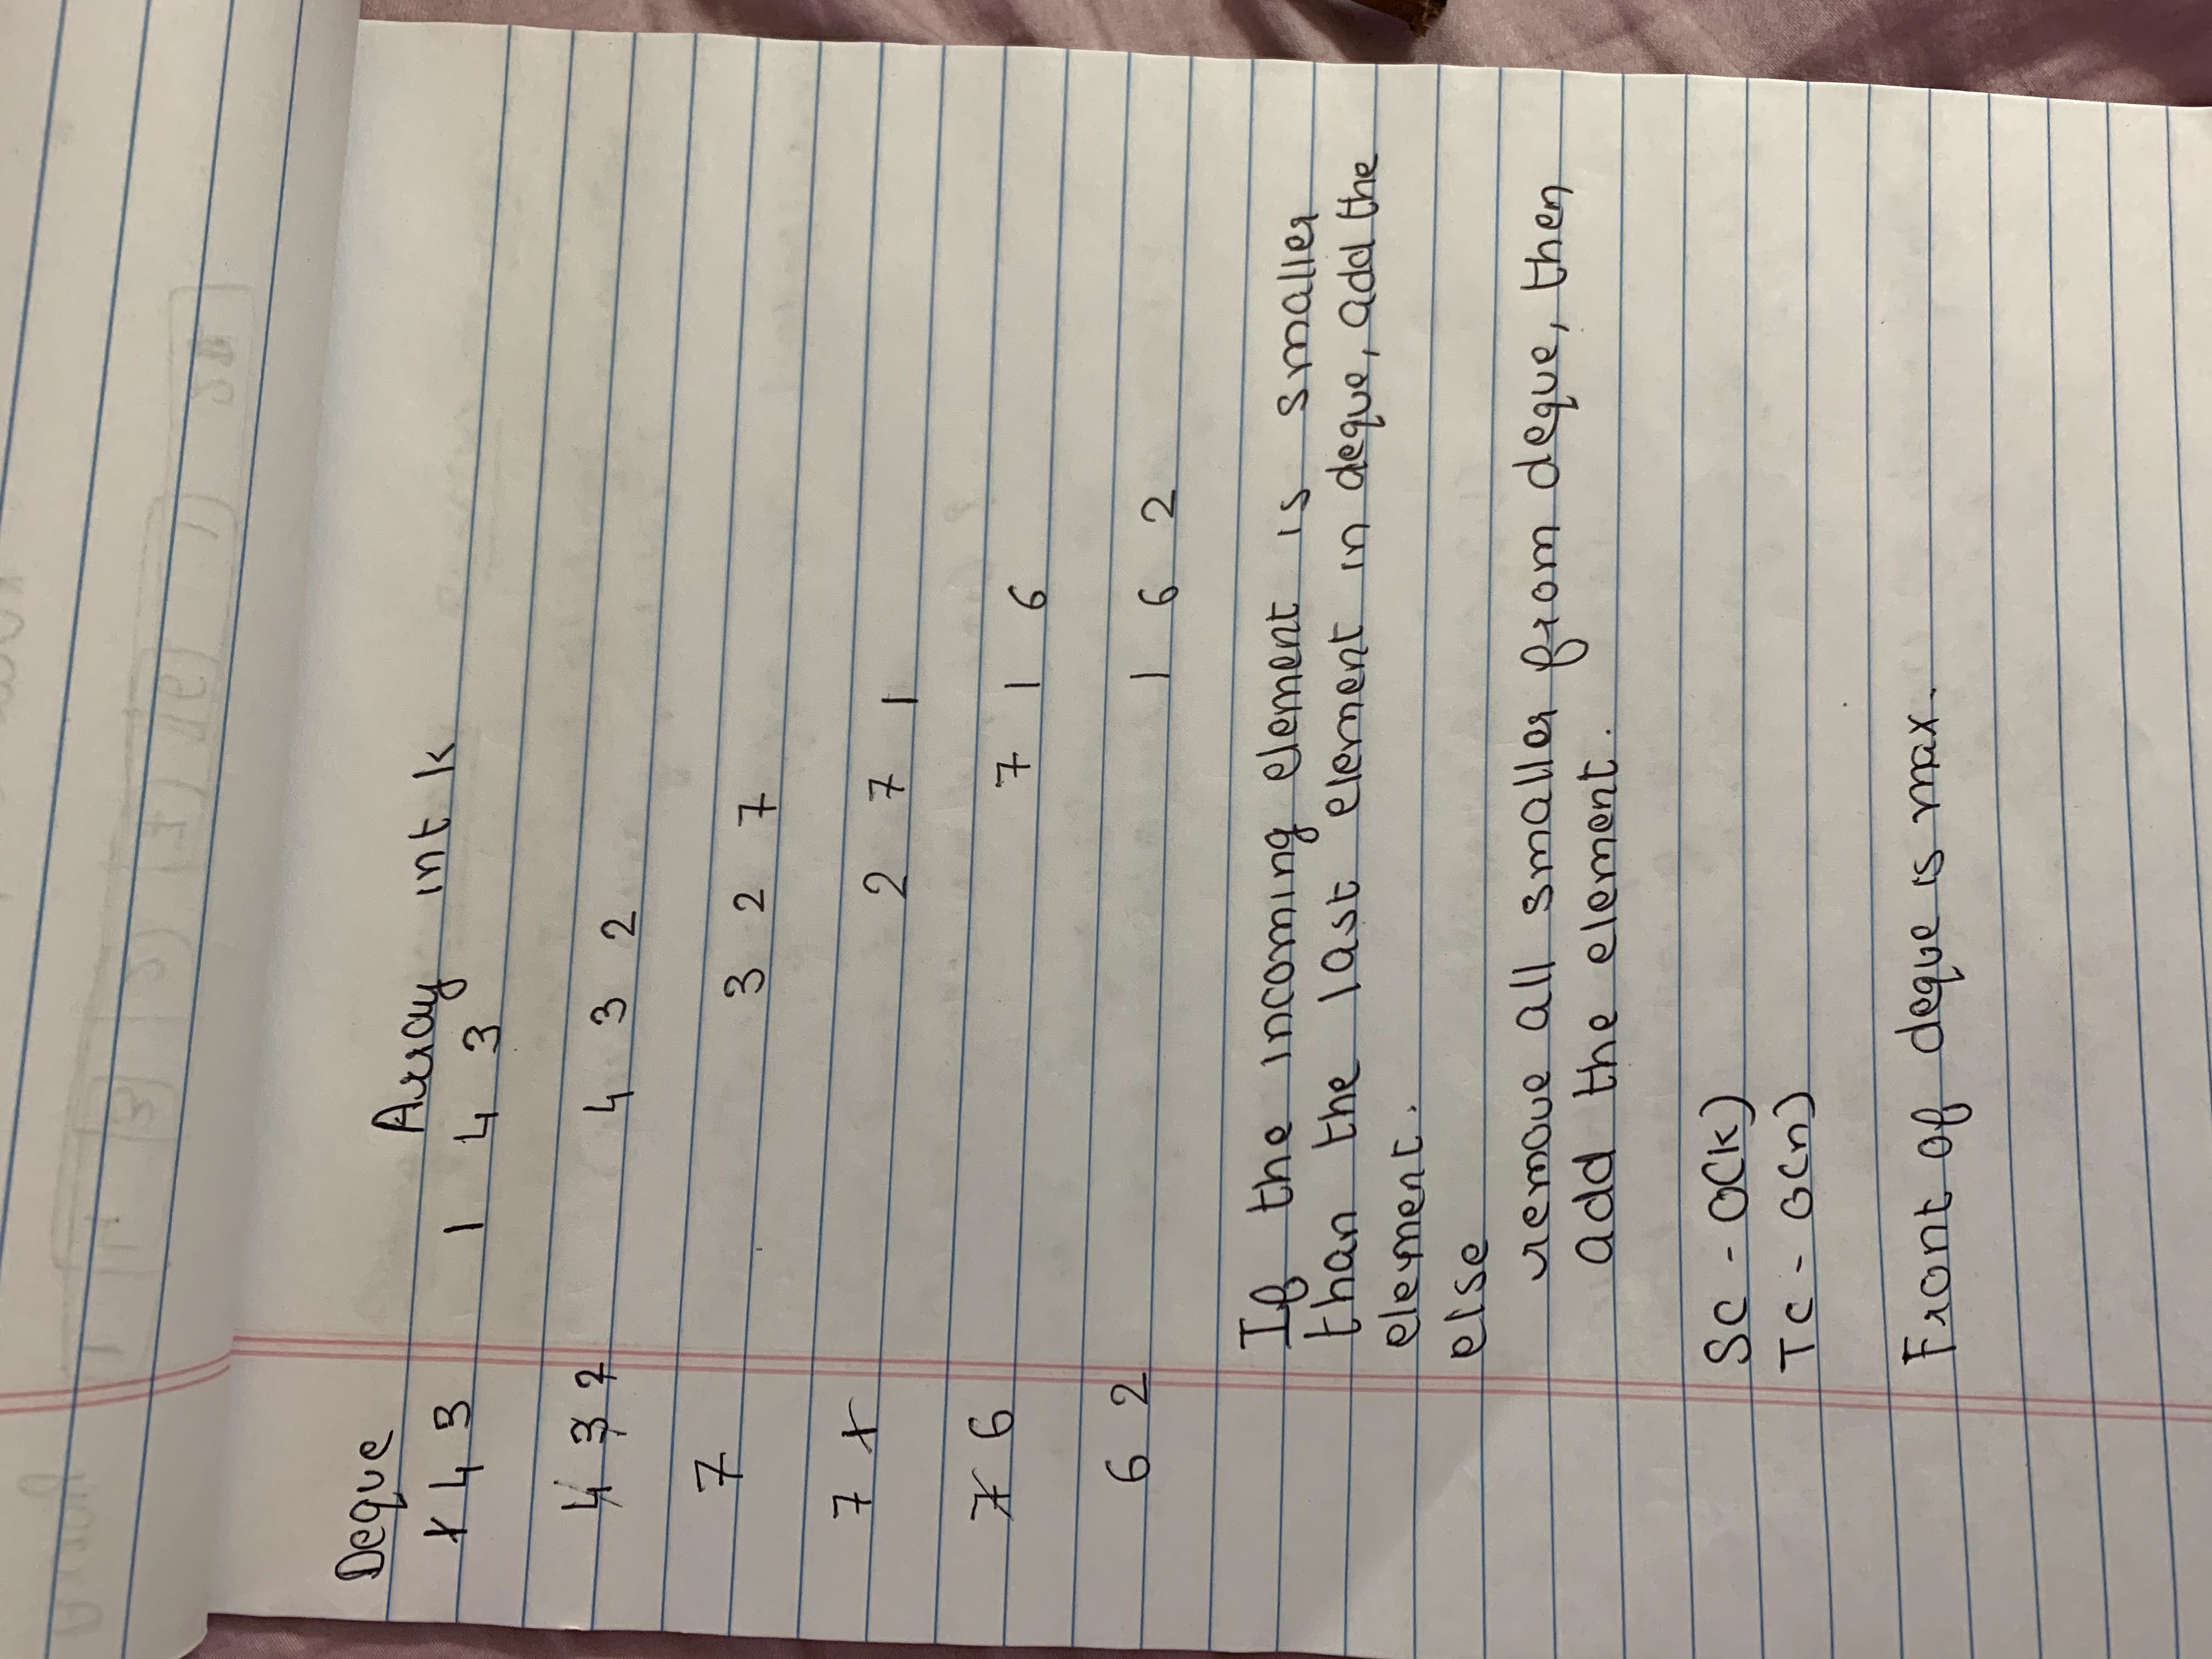 Deque
Array int k
1 4 3 1 4 3
4 3 2 4 3 2
7 3 2 7
7 1 2 7 1
7 6 7 1 6
6 2 1 6 2
If the incoming element is smaller
than the last element in deque, add the
element.
else
remove all smaller from deque, then
add the element.
SC - O(k)
TC - O(n)
Front of deque is max.